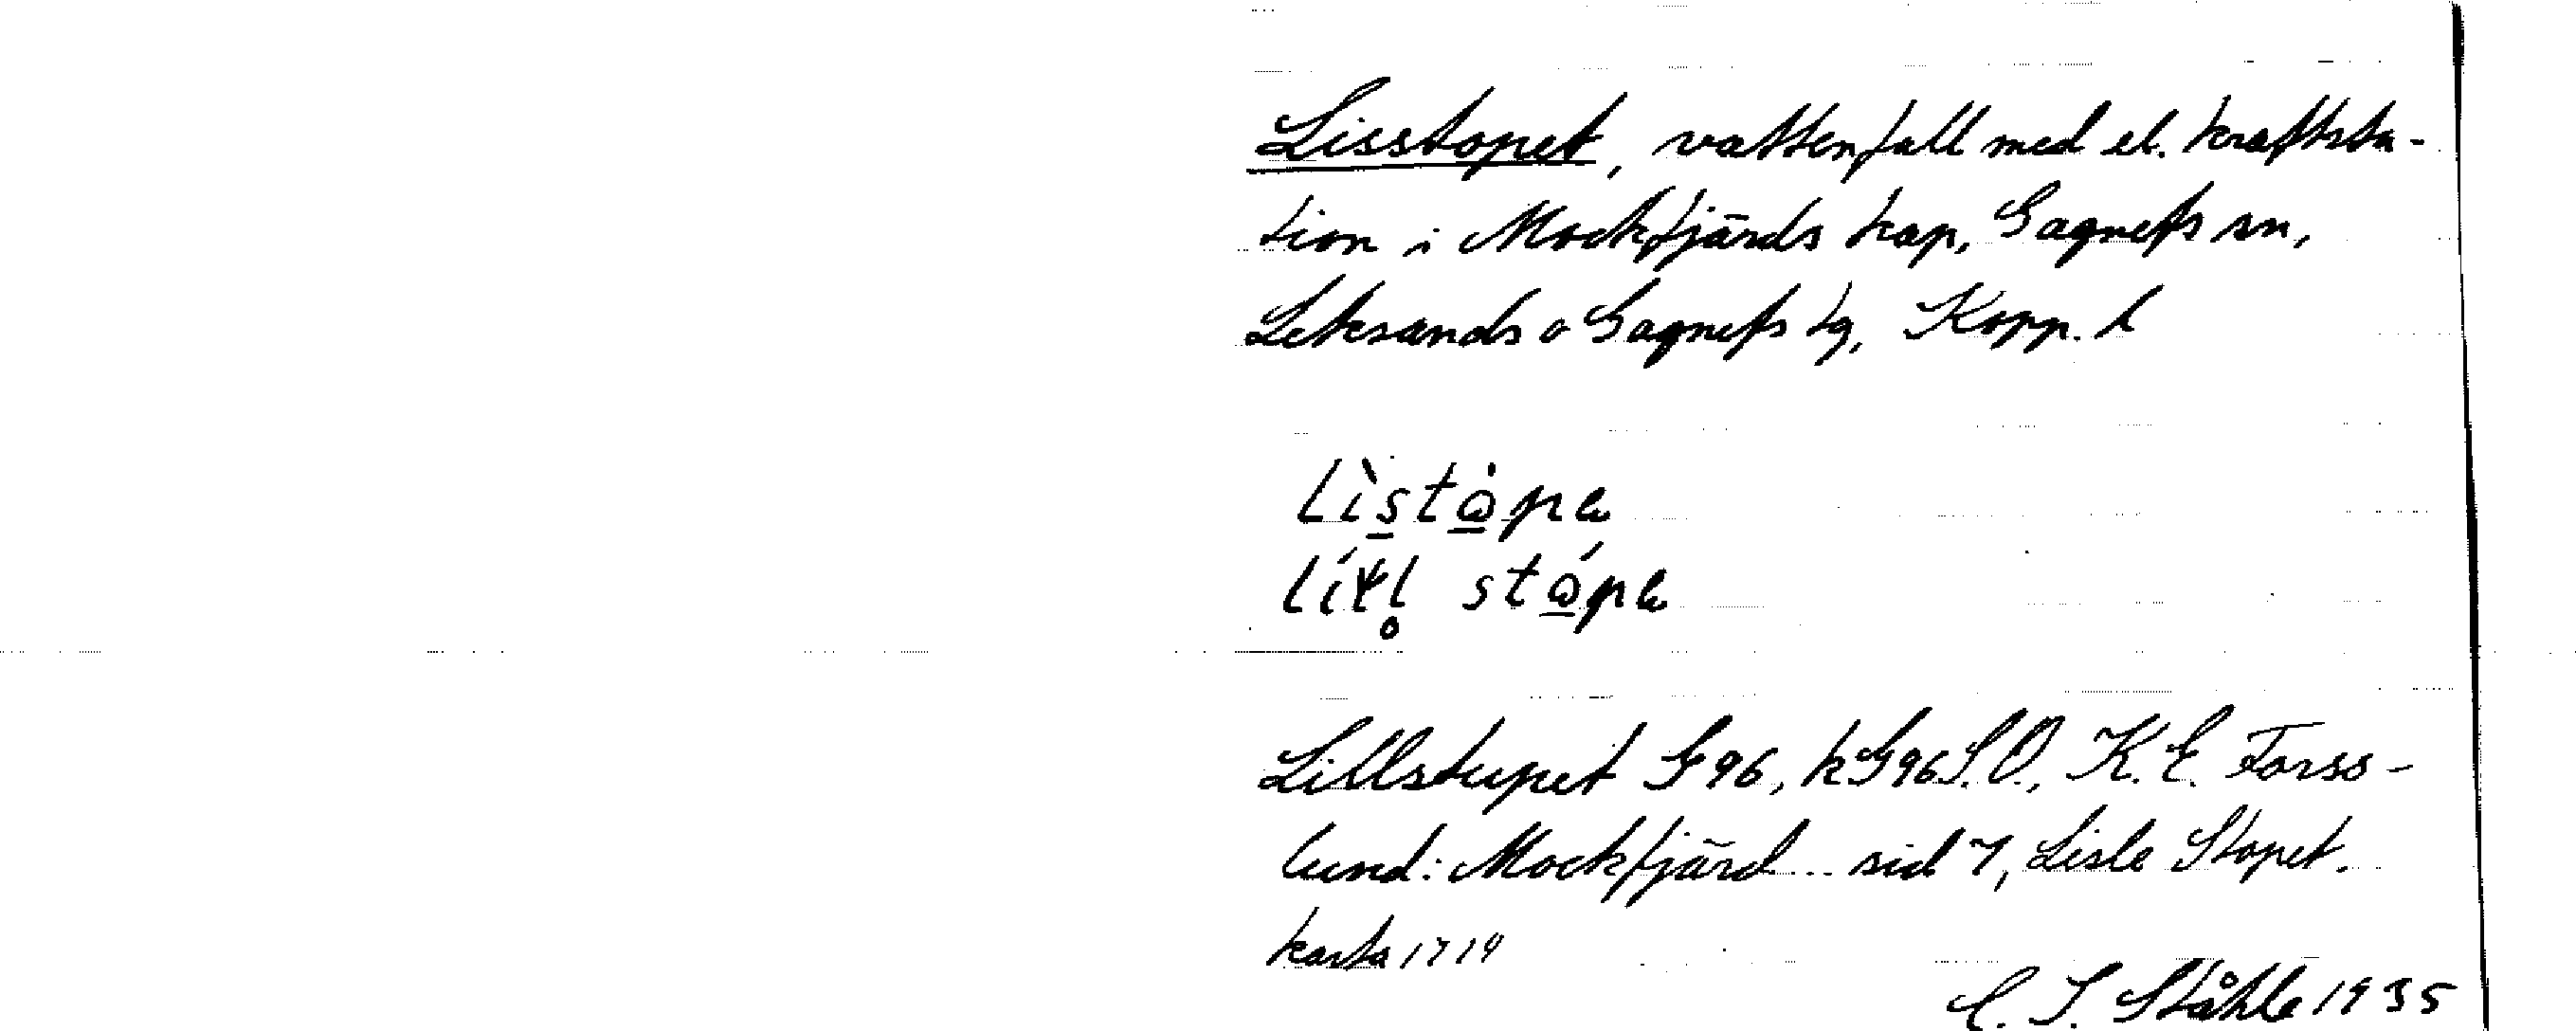 Lisstopet, vattenfall med el. kraftsta-
tion i Mockfjärds kap, Gagnefs sn,
Leksands o Gagnefs tg, Kopp. l
Lìstòpe
stópe
Lillstupet G96, kG96S.O., K.E. Forss-
lund: Mockfjärd... sid 7, Lisle Stopet.
karta 1714
C. I. Ståhle 1935